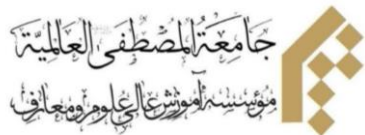 جَامِعَةُ المُصْطَفیٰ العَالَمِيَّة
مؤسسه آموزش عالی علوم و معارف